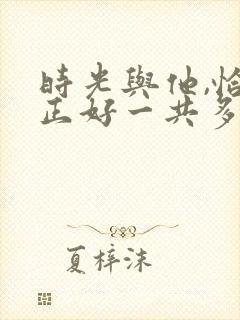 時光與他,恰
正好一共多
夏梓沫